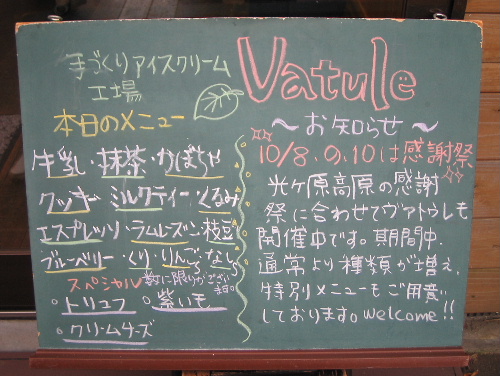 手づくりアイスクリーム
工場
Vatule
本日のメニュー
牛乳・抹茶・かぼちゃ
クッキー・ミルクティー・くるみ
エスプレッソ・ラムレーズン・枝豆
ブルーベリー・くり・りんご・なし
スペシャル 数に限りがございます。
○トリュフ ○紫いも
○クリームチーズ
～お知らせ～
10/8、9、10は感謝祭
光ヶ原高原の感謝
祭に合わせてヴァトゥレも
開催中です。期間中、
通常より種類が増え、
特別メニューもご用意
しております。welcome!!